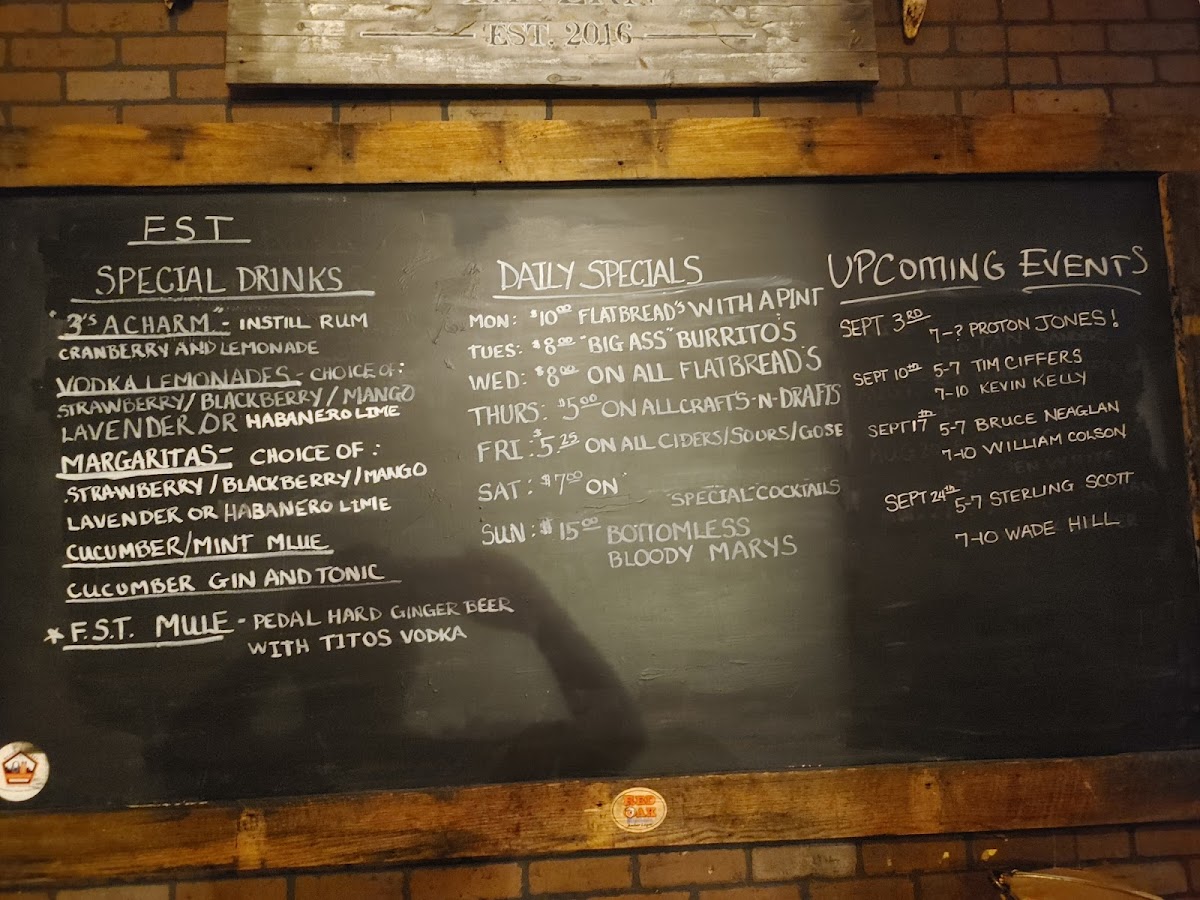 EST. 2016
FST
SPECIAL DRINKS
"3'S A CHARM" - INSTILL RUM
CRANBERRY AND LEMONADE
VODKA LEMONADES - CHOICE OF:
STRAWBERRY/ BLACKBERRY / MANGO
LAVENDER OR HABANERO LIME
MARGARITAS - CHOICE OF:
STRAWBERRY / BLACKBERRY / MANGO
LAVENDER OR HABANERO LIME
CUCUMBER/MINT MLUE
CUCUMBER GIN AND TONIC
* F.S.T. MULE - PEDAL HARD GINGER BEER
WITH TITOS VODKA
DAILY SPECIALS
MON: $10.00 FLATBREAD'S WITH A PINT
TUES: $8.00 "BIG ASS" BURRITO'S
WED: $8.00 ON ALL FLATBREAD'S
THURS: $5.00 ON ALL CRAFT'S-N-DRAFTS
FRI: $5.25 ON ALL CIDERS/SOURS/GOSE
SAT: $7.00 ON "SPECIAL" COCKTAILS
SUN: $15.00 BOTTOMLESS
BLOODY MARYS
UPCOMING EVENTS
SEPT 3RD 7-? PROTON JONES!
SEPT 10th 5-7 TIM CIFFERS
7-10 KEVIN KELLY
SEPT 17th 5-7 BRUCE NEAGLAN
7-10 WILLIAM COLSON
SEPT 24th 5-7 STERLING SCOTT
7-10 WADE HILL